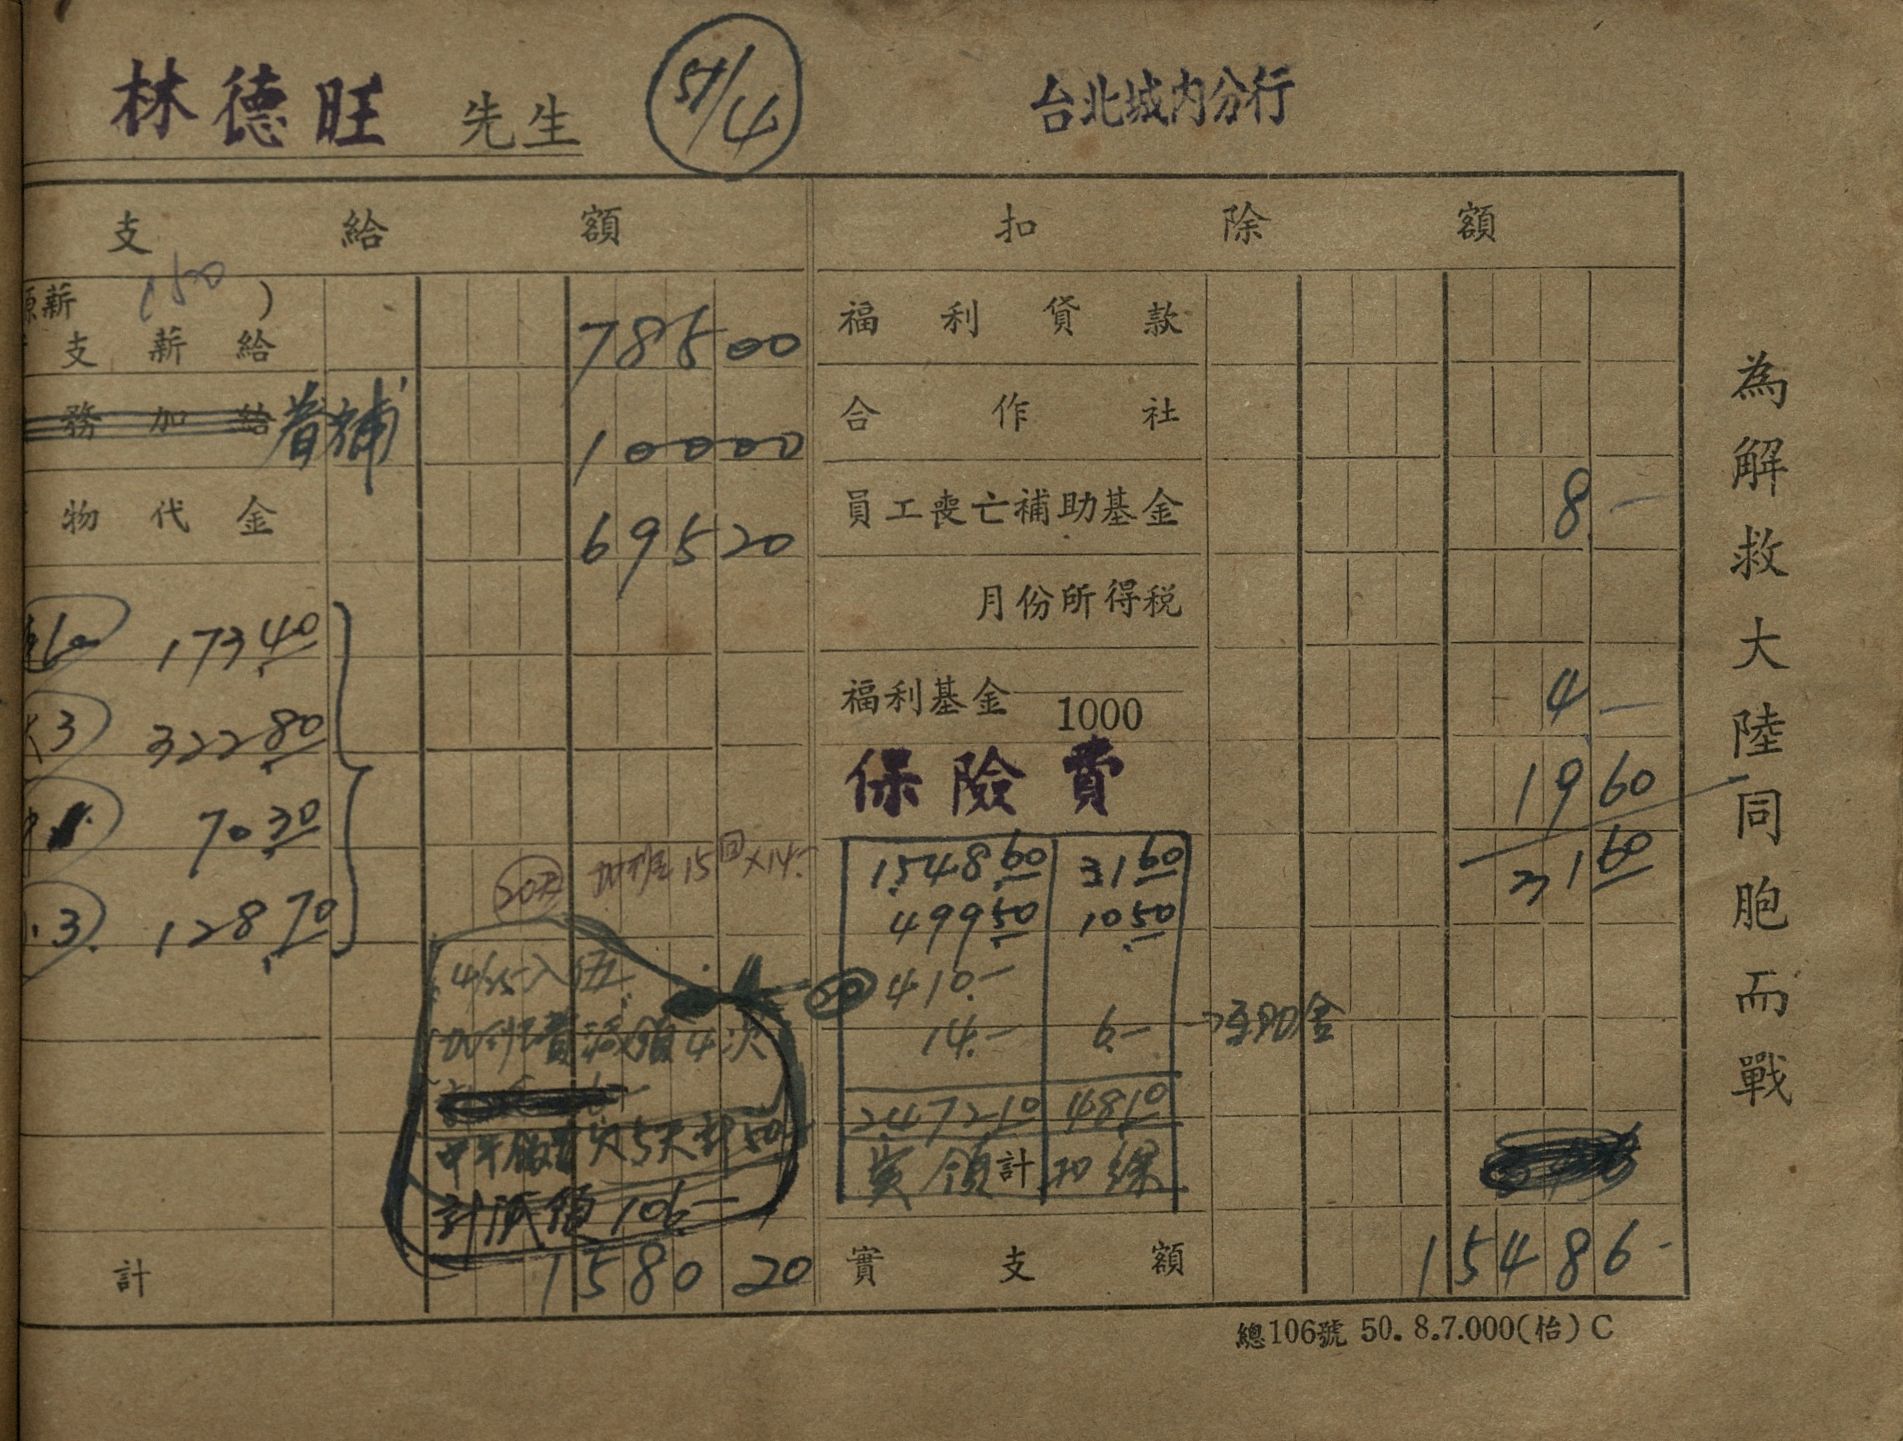 林德旺 先生
51/4
台北城內分行
支給額
原薪 (150)
支薪給 785 00
務加給 眷補 100 00
物代金 695 20
173.40
3 322.80
70.30
3. 128.70
20天 加班15回×14.-
4/25入伍
加班費減領4次
計減領106.-
計 1580 20
扣除額
福利貸款
合作社
員工喪亡補助基金 8 -
月份所得稅
福利基金 1000 4 -
保險費 19 60
31 60
1,548.60 31 60
499.50 10.50
410.-
14.- 6.- →互助金
2472 10 48 10
實領計 扣繳
實支額 1548 6-
總106號 50.8.7.000(怡)C
為解救大陸同胞而戰